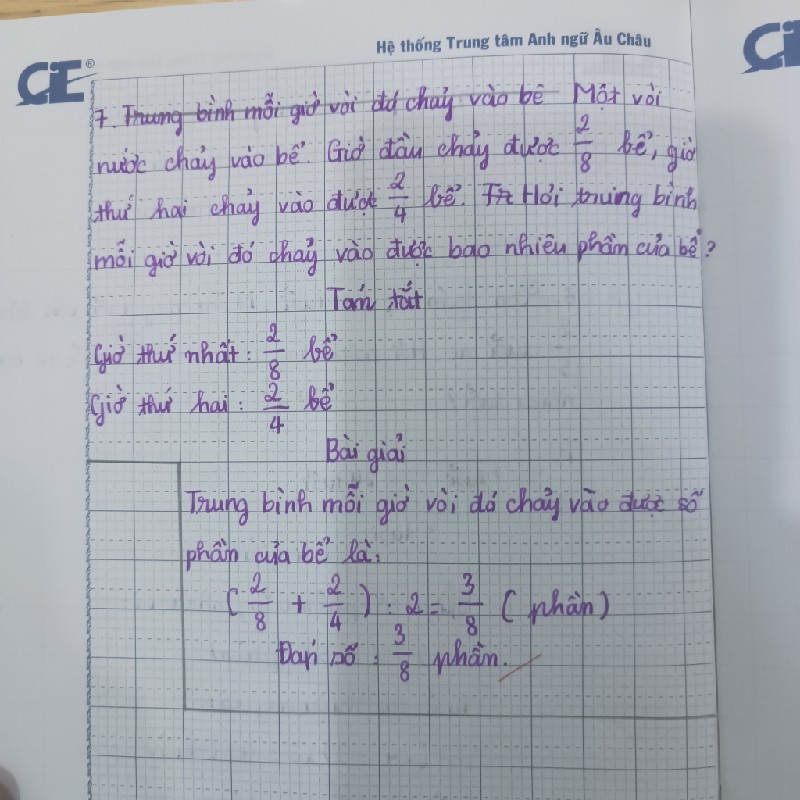 CIE®
Hệ thống Trung tâm Anh ngữ Âu Châu
CIE
7. Trung bình mỗi giờ vòi đó chảy vào bê Một vòi
nước chảy vào bể. Giờ đầu chảy được 2/8 bể, giờ
thứ hai chảy vào được 2/4 bể. Tr Hỏi trung bình
mỗi giờ vòi đó chảy vào được bao nhiêu phần của bể?
Tóm tắt
Giờ thứ nhất: 2/8 bể
Giờ thứ hai: 2/4 bể
Bài giải
Trung bình mỗi giờ vòi đó chảy vào được số
phần của bể là:
(2/8 + 2/4) : 2 = 3/8 (phần)
Đáp số: 3/8 phần.